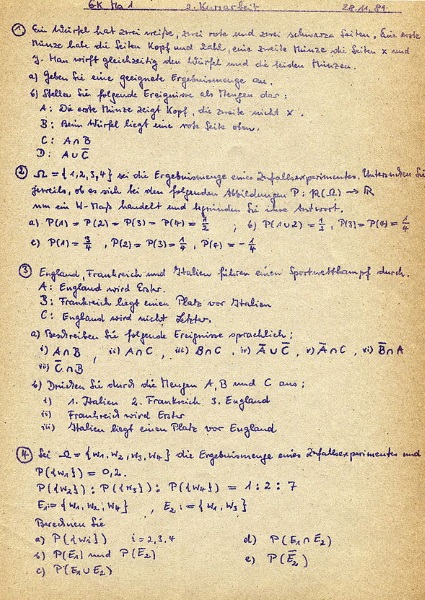 GK Ma 1 2. Kursarbeit 28.11.89
① Ein Würfel hat zwei weiße, zwei rote und zwei schwarze Seiten. Eine erste
Münze hat die Seiten Kopf und Zahl, eine zweite Münze die Seiten x und
y. Man wirft gleichzeitig den Würfel und die beiden Münzen.
a) Geben Sie eine geeignete Ergebnismenge an.
b) Stellen Sie folgende Ereignisse als Mengen dar:
A: Die erste Münze zeigt Kopf, die zweite nicht x.
B: Beim Würfel liegt eine rote Seite oben.
C: A∩B
D: A∪C̅
② Ω = {1,2,3,4} sei die Ergebnismenge eines Zufallsexperimentes. Untersuchen Sie
jeweils, ob es sich bei den folgenden Abbildungen P: P(Ω) → R
um ein W-Maß handelt und begründen Sie Ihre Antwort.
a) P(1) = P(2) = P(3) = P(4) = 1/2 ; b) P(1∪2) = 1/2, P(3) = P(4) = 1/4
c) P(1) = 3/4, P(2) = P(3) = 1/4, P(4) = -1/4
③ England, Frankreich und Italien führen einen Sportwettkampf durch.
A: England wird Erster.
B: Frankreich liegt einen Platz vor Italien
C: England wird nicht Letzter.
a) Beschreiben Sie folgende Ereignisse sprachlich:
i) A∩B, ii) A∩C, iii) B∩C, iv) A̅∪C̅, v) A̅∩C, vi) B̅∩A
vii) C̅∩B
b) Drücken Sie durch die Mengen A, B und C aus:
i) 1. Italien 2. Frankreich 3. England
ii) Frankreich wird Erster
iii) Italien liegt einen Platz vor England
④ Sei Ω = {w₁, w₂, w₃, w₄} die Ergebnismenge eines Zufallsexperimentes und
P({w₁}) = 0,2.
P({w₂}) : P({w₃}) : P({w₄}) = 1 : 2 : 7
E₁ = {w₁, w₂, w₄} , E₂ = {w₁, w₃}
Berechnen Sie
a) P({wi}) i = 2,3,4 d) P(E₁∩E₂)
b) P(E₁) und P(E₂) e) P(E̅₂)
c) P(E₁∪E₂)